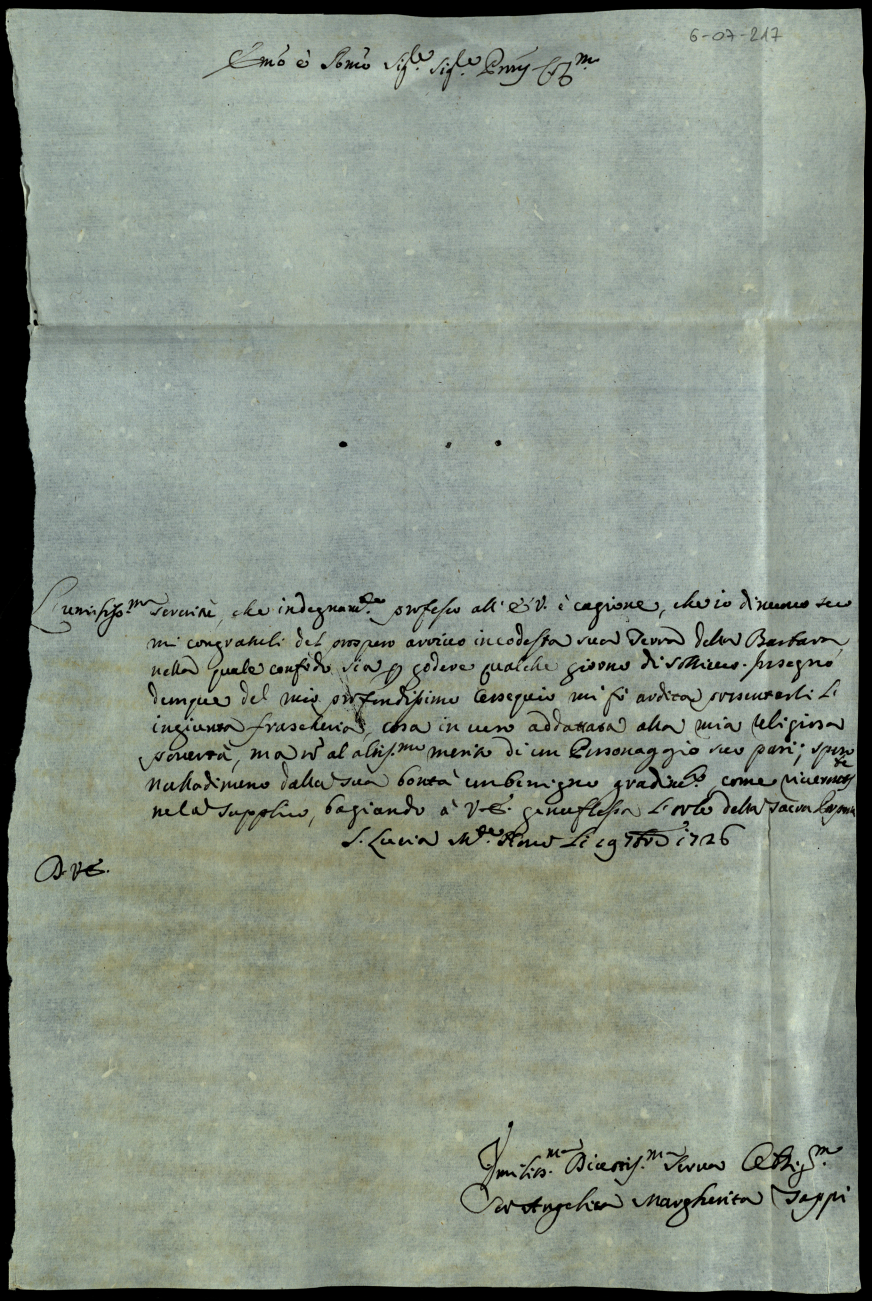 6-07-217
Emõ è Rmõ Sig.re Sig.re Prõn
L'umilissi.ma servitù, che indegnam.te professo all' E.V. è cagione, che io di nuovo seco
mi congratuli del prospero arrivo in codesta sua Terra della Barbara,
nella quale confido sia p godere qualche giorno di sollievo. In segno
dunque del mio profondissimo ossequio mi fò ardita presentarli l'
ingiunta frascheria, cosa in vero addattata alla mia religiosa
povertà, ma nõ al altiss.mo merito di un Personaggio suo pari; spero
nulladimeno dalla sua bontà un benigno gradim.to, come
ne la supplico, bagiando à V.E. genuflessa l'orlo della sacra Porpora
S. Lucia M.te Li 19 9bre 1726
D. V.E.
Umiliss.ma Divotis.ma Serva Obblig.ma
Sr Angelica Margherita Zappi